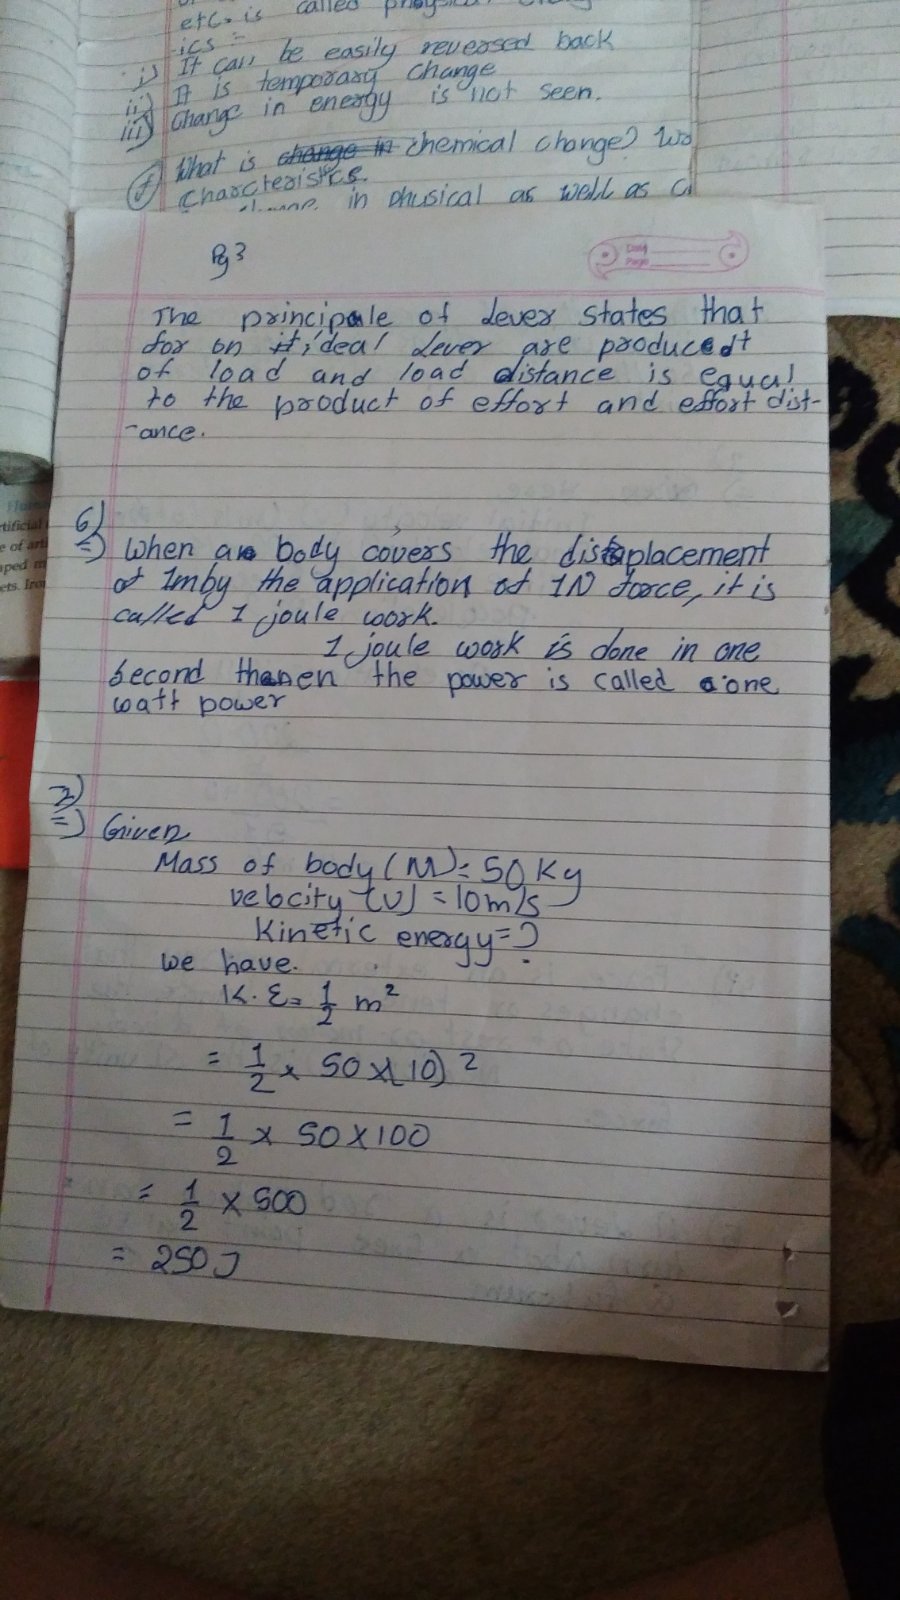 etc. is called physical
ics :-
i) It can be easily reversed back
ii) It is temporary change
iii) Change in energy is not seen.
f) What is change in chemical change? Wr
Charcteristics.
in physical as well as c
Pg 3
Date
Page
The principale of Lever states that
for on it, ideal Lever are producedt
of load and load distance is equal
to the product of effort and effort dist-
-ance.
6)
=) When an body covers the displacement
of 1m by the application of 1N force, it is
called 1 joule work.
1 joule work is done in one
second thenen the power is called a one
watt power
7)
=) Given
Mass of body (M) = 50 Kg
velocity (v) = 10 m/s
Kinetic energy = ?
we have.
K.E = 1/2 m²
= 1/2 × 50 × (10) 2
= 1/2 × 50 × 100
= 1/2 × 500
= 250 J
tificial
e of arti
aped m
cts. Iro